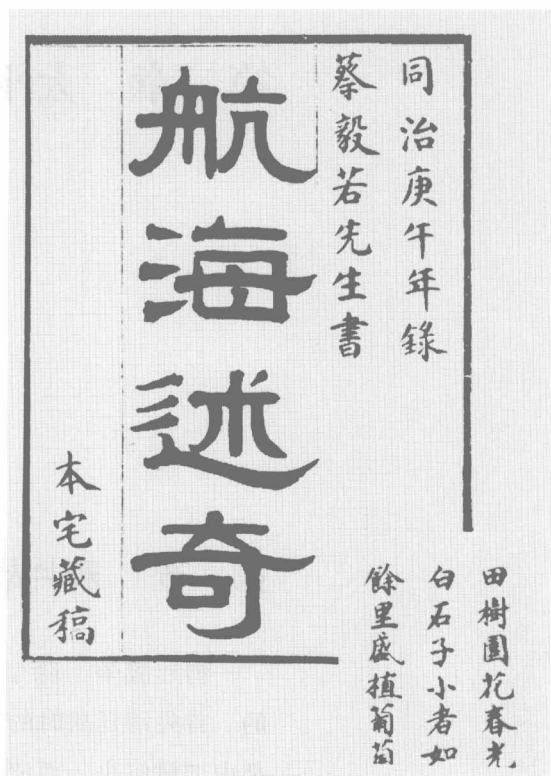 同治庚午年錄
蔡毅若先生書
航海述奇
本宅藏稿
田樹園花春光
白石子小者如
餘里盛植葡萄